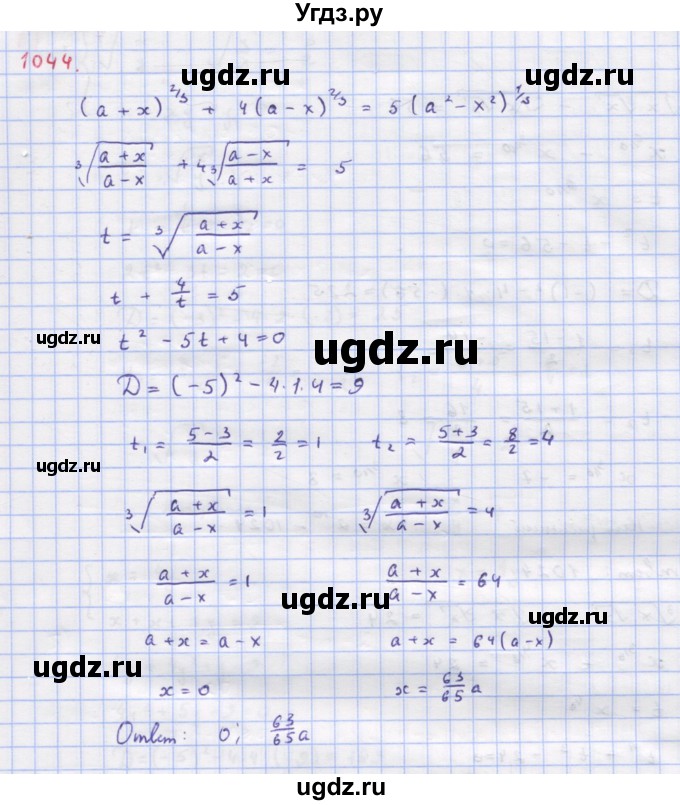 Угдз.ру
1044.
ugdz.ru ugdz.ru
(a + x)^{2/3} + 4(a - x)^{2/3} = 5(a² - x²)^{1/3}
∛((a + x)/(a - x)) + 4∛((a - x)/(a + x)) = 5
t = ∛((a + x)/(a - x))
t + 4/t = 5
ugdz.ru ugdz.ru
t² - 5t + 4 = 0
D = (-5)² - 4·1·4 = 9
t₁ = (5-3)/2 = 2/2 = 1 t₂ = (5+3)/2 = 8/2 = 4
ugdz.ru
∛((a + x)/(a - x)) = 1 ∛((a + x)/(a - x)) = 4
(a + x)/(a - x) = 1 (a + x)/(a - x) = 64
ugdz.ru ugdz.ru
a + x = a - x a + x = 64(a - x)
ugdz.ru
x = 0 x = 63/65 a
Ответ: 0; 63/65 a
ugdz.ru ugdz.ru
ugdz.ru